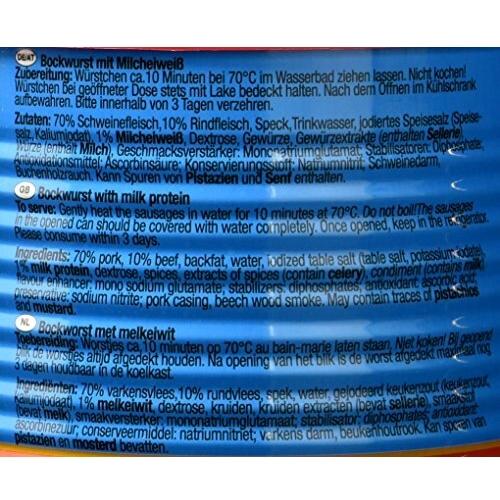 DE/AT Bockwurst mit Milcheiweiß
Zubereitung: Würstchen ca.10 Minuten bei 70°C im Wasserbad ziehen lassen. Nicht kochen!
Würstchen bei geöffneter Dose stets mit Lake bedeckt halten. Nach dem Öffnen im Kühlschrank
aufbewahren. Bitte innerhalb von 3 Tagen verzehren.
Zutaten: 70% Schweinefleisch,10% Rindfleisch, Speck,Trinkwasser, jodiertes Speisesalz (Speise-
salz, Kaliumjodat), 1% Milcheiweiß, Dextrose, Gewürze, Gewürzextrakte (enthalten Sellerie),
Würze (enthält Milch), Geschmacksverstärker: Mononatriumglutamat; Stabilisatoren: Diphosphate;
Antioxidationsmittel: Ascorbinsäure; Konservierungsstoff: Natriumnitrit, Schweinedarm,
Buchenholzrauch. Kann Spuren von Pistazien und Senf enthalten.
GB Bockwurst with milk protein
To serve: Gently heat the sausages in water for 10 minutes at 70°C. Do not boil!The sausages
in the opened can should be covered with water completely. Once opened, keep in the refrigerator.
Please consume within 3 days.
Ingredients: 70% pork, 10% beef, backfat, water, iodized table salt (table salt, potassium iodate),
1% milk protein, dextrose, spices, extracts of spices (contain celery), condiment (contains milk)
flavour enhancer: mono sodium glutamate; stabilizers: diphosphates; antioxidant: ascorbic acid;
preservative: sodium nitrite; pork casing, beech wood smoke. May contain traces of pistachios
and mustard.
NL Bockworst met melkeiwit
Toebereiding: Worstjes ca.10 minuten op 70°C au bain-marie laten staan, Niet koken! Bij geopend
blik de worstjes altijd afgedekt houden. Na opening van het blik is de worst afgedekt maximaal nog
3 dagen houdbaar in de koelkast.
Ingrediënten: 70% varkensvlees,10% rundvlees, spek, water, gejodeerd keukenzout (keukenzout,
kaliumjodaat), 1% melkeiwit, dextrose, kruiden, kruiden extracten (bevat sellerie), smaakstof
(bevat melk), smaakversterker: mononatriumglutamaat; stabilisator: diphosphates; antioxidant:
ascorbinezuur; conserveermiddel: natriumnitriet; varkens darm, beukenhoutrook. Kan sporen van
pistazien en mosterd bevatten.